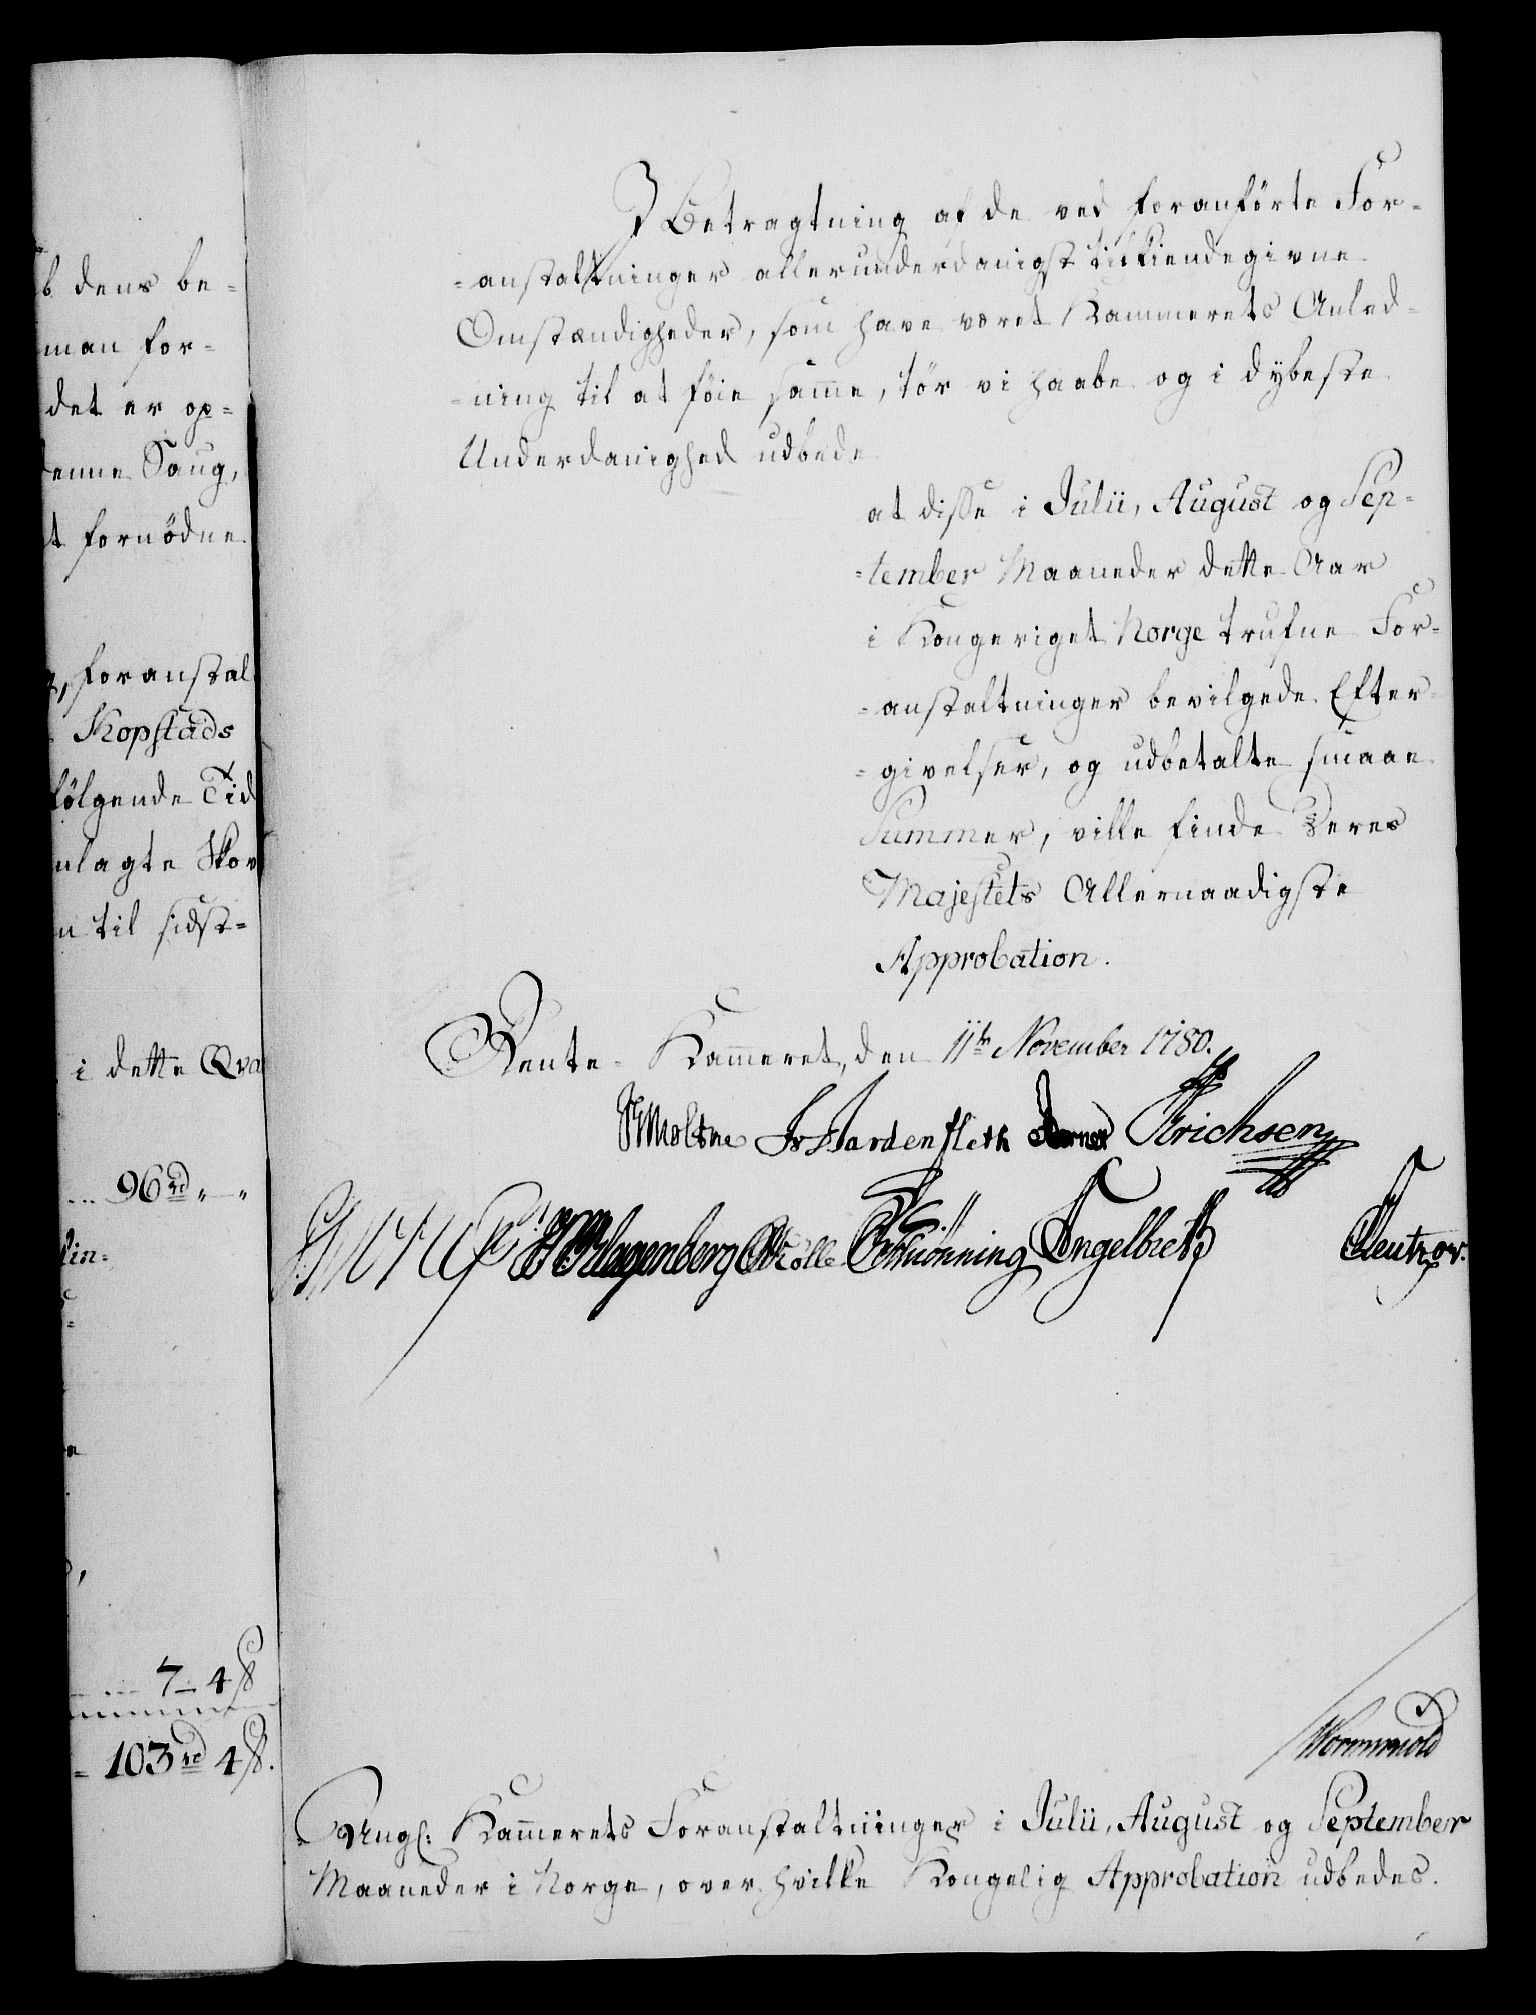 b dens be=
man for=
det er op=
denne Saug,
t fornödne
foranstal
Kopstads
fölgende Tid
nlagte Skov
n til sidst=
i dette Qva
96 rd " "
7 4 ß
103 rd 4 ß.
I Betragtning af de ved foranförte For=
=anstaltninger allerunderdanigst tilkiendegivne
Omstændigheder, som have været Kammerets Anled=
=ning til at föie samme, tör vi haabe og i dybeste
Underdanighed udbede
at disse i Julii, August og Sep=
=tember Maaneder dette Aar
i Kongeriget Norge trufne For=
=anstaltninger bevilgede Efter=
=givelser, og udbetalte smaae
Summer, ville finde Deres
Majestets Allernaadigste
Approbation.
Rente=Kammeret, den 11te November 1780.
Moltke Hardenfleth Erichsen
Klagenberg Müllen Schiønning Engelbreth Neutzov.
Wormwold
Angl: Kammerets Foranstaltninger i Julii, August og September
Maaneder i Norge, over hvilke Kongelig Approbation udbedes.